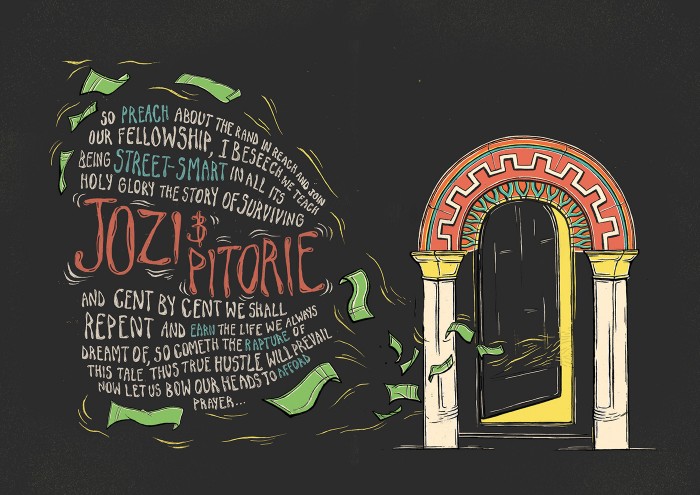 SO PREACH ABOUT THE RAND IN REACH AND JOIN
OUR FELLOWSHIP, I BESEECH, WE TEACH
BEING STREET-SMART IN ALL ITS
HOLY GLORY THE STORY OF SURVIVING
JOZI &
PITORIE
AND CENT BY CENT WE SHALL
REPENT AND EARN THE LIFE WE ALWAYS
DREAMT OF, SO COMETH THE RAPTURE OF
THIS TALE THUS TRUE HUSTLE WILL PREVAIL
NOW LET US BOW OUR HEADS TO AFFORD
PRAYER...